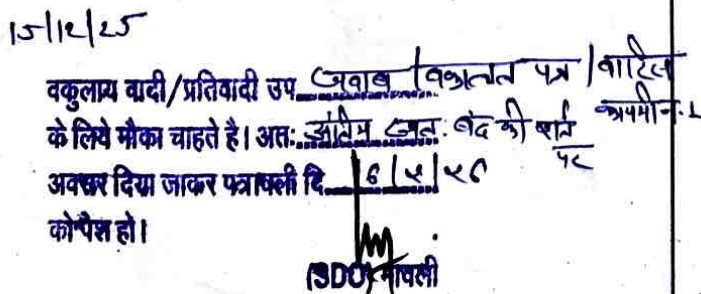 15/12/25
वकुलाय वादी/प्रतिवादी उप जवाब/वकालत पत्र/
के लिये मौका चाहते है। अतः अंतिम बंद की शर्त पर
अवसर दिया जाकर पत्रावली दि.
को पेश हो।
(SDO) मावली